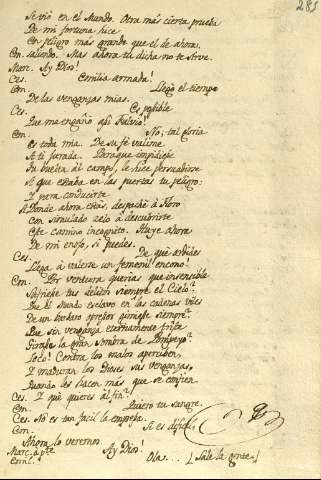 285
Se vió en el Mundo. Otra más cierta prueba
De mi fortuna hice
En peligro más grande que el de ahora.
Cor. saliendo. Mas ahora tu dicha no te sirve.
Marc. Ay Dios!
Ces. Emilia armada!
Cor. Llegó el tiempo
De las venganzas mias.
Ces. Es posible
Que me engañó asi Fulvio!
Cor. No; tal gloria
es toda mia. De su fé valime
A ti jurada. Para que impidiese
Tu buelta al campo, le hice persuadirse
A que estaba en las puertas tu peligro:
Y para conducirte
A Donde ahora estás, despaché à Floro
Con simulado zelo à descubrirte
Este camino incognito. Huye ahora
De mi enojo, si puedes.
Ces. De qué ardides
Llega à valerse un femenil encono!
Cor. Por ventura querias que insensible
Sufriese tus delitos siempre el Cielo?
Que el Mundo esclavo en las cadenas viles
De un bárbaro opresor gimiese siempre?
Que sin venganza eternamente triste
Girase la gran sombra de Pompeyo?
Loco! Contra los malos aperciben,
Y maduran los Dioses sus venganzas,
Quando les hacen más que se confien.
Ces. Y que quieres al fin?
Cor. Quiero tu sangre.
Ces. No es tan facil la empresa.
Cor. Si es dificil
Ahora lo veremos.
Marc. à pte. Ay Dios!
Corn. Ola... (Sale la gente.)